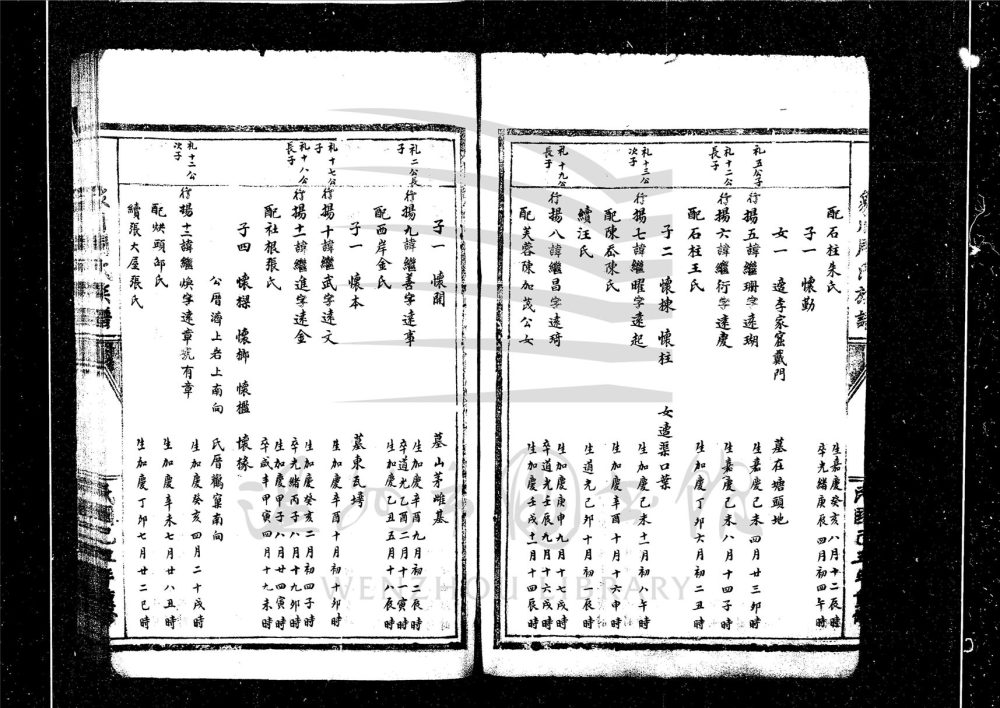 配石柱朱氏
生嘉慶己未八月十二辰時
卒光緒庚辰四月初四午時
子一 懷勤
女一 適李家窟戴門
墓在塘頭地
礼五公子
行揚五諱繼珊字遠瑚
生嘉慶己未四月廿三卯時
配石柱王氏
生嘉慶己未八月十四子時
礼十二公長子
行揚六諱繼衍字遠慶
生加慶丁卯六月初二丑時
子二 懷棟 懷柱 女適渠口葉
礼十三公次子
行揚七諱繼曜字遠起
生加慶己未十一月初八午時
配陳岙陳氏
生加慶辛酉十月十六申時
續汪氏
生道光己卯十月初一辰時
礼十九公長子
行揚八諱繼昌字遠琦
生加慶庚申九月十七戌時
卒道光壬辰九月十六戌時
配芙蓉陳加茂公女
生加慶壬戌十一月十四辰時
子一 懷開
墓山茅雌基
礼二公長子
行揚九諱繼善字遠事
生加慶辛酉九月初三辰時
卒道光乙酉二月十二寅時
配西岸金氏
生加慶乙丑五月十一辰時
子一 懷本
墓東瓦塆
礼十七公子
行揚十諱繼武字遠文
生加慶辛酉十月初十卯時
礼十八公長子
行揚十一諱繼進字遠金
生加慶癸亥二月初四子時
卒光緒丙子八月十九卯時
配社根張氏
生加慶甲子八月廿四寅時
卒咸豐甲寅四月十九未時
子四 懷操 懷鄉 懷檻 懷椽
公厝湾上老上南向
氏厝鵝窠南向
礼十二公次子
行揚十二諱繼煥字遠章號有章
生加慶癸亥四月二十戌時
配炔頭邵氏
生加慶辛未七月廿八丑時
續張大屋張氏
生加慶丁卯七月廿二巳時
WENZHOU LIBRARY